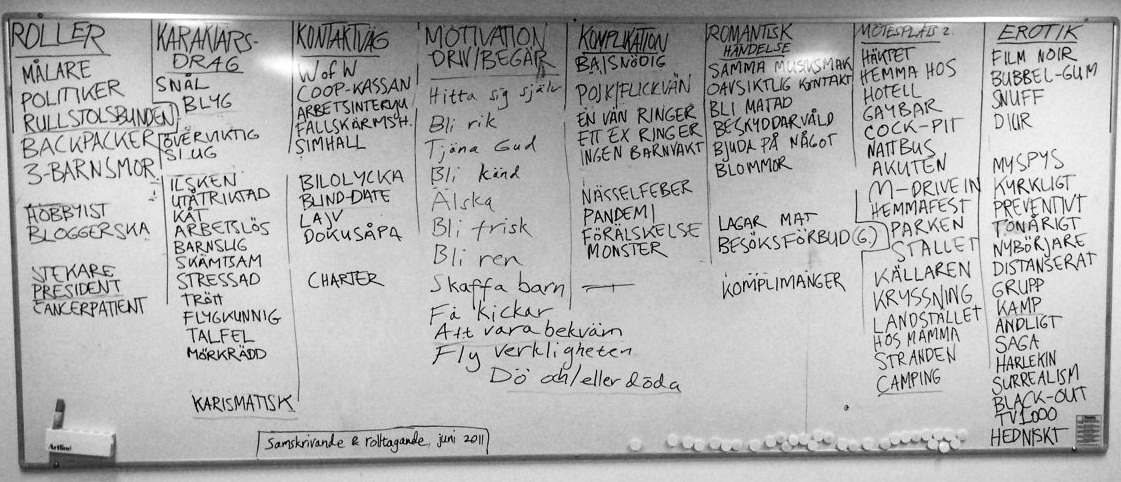 ROLLER
MÅLARE
POLITIKER
RULLSTOLSBUNDEN
BACKPACKER
3-BARNSMOR
HOBBYIST
BLOGGERSKA
STEKARE
PRESIDENT
CANCERPATIENT
KARAKTÄRS-
DRAG
SNÅL
BLYG
ÖVERVIKTIG
SLUG
ILSKEN
UTÅTRIKTAD
KÅT
ARBETSLÖS
BARNSLIG
SKÄMTSAM
STRESSAD
TRÖTT
FLYGKUNNIG
TALFEL
MÖRKRÄDD
KARISMATISK
KONTAKTVÄG
WofW
COOP-KASSAN
ARBETSINTERVJU
FALLSKÄRMSH.
SIMHALL
BILOLYCKA
BLIND-DATE
LAJV
DOKUSÅPA
CHARTER
MOTIVATION
DRIV/BEGÄR
Hitta sig själv
Bli rik
Tjäna Gud
Bli känd
Älska
Bli frisk
Bli ren
Skaffa barn
Få kickar
Att vara bekväm
Fly verkligheten
Dö och/eller döda
KOMPLIKATION
BAJSNÖDIG
POJK/FLICKVÄN
EN VÄN RINGER
ETT EX RINGER
INGEN BARNVAKT
NÄSSELFEBER
PANDEMI
FÖRÄLSKELSE
MONSTER
ROMANTISK
HÄNDELSE
SAMMA MUSUSMAK
OAVSIKTLIG KONTAKT
BLI MATAD
BESKYDDARVÅLD
BJUDA PÅ NÅGOT
BLOMMOR
LAGAR MAT
BESÖKSFÖRBUD (6.)
KOMPLIMANGER
MÖTESPLATS 2.
HÄKTET
HEMMA HOS
HOTELL
GAYBAR
COCK-PIT
NATTBUS
AKUTEN
M-DRIVE IN
HEMMAFEST
PARKEN
STALLET
KÄLLAREN
KRYSSNING
LANDSTÄLLET
HOS MAMMA
STRANDEN
CAMPING
EROTIK
FILM NOIR
BUBBEL-GUM
SNUFF
DJUR
MYSPYS
KYRKLIGT
PREVENTIVT
TONÅRIGT
NYBÖRJARE
DISTANSERAT
GRUPP
KAMP
ANDLIGT
SAGA
HARLEKIN
SURREALISM
BLACK-OUT
TV1000
HEDNISKT
Samskrivande & rolltagande, juni 2011
Artline